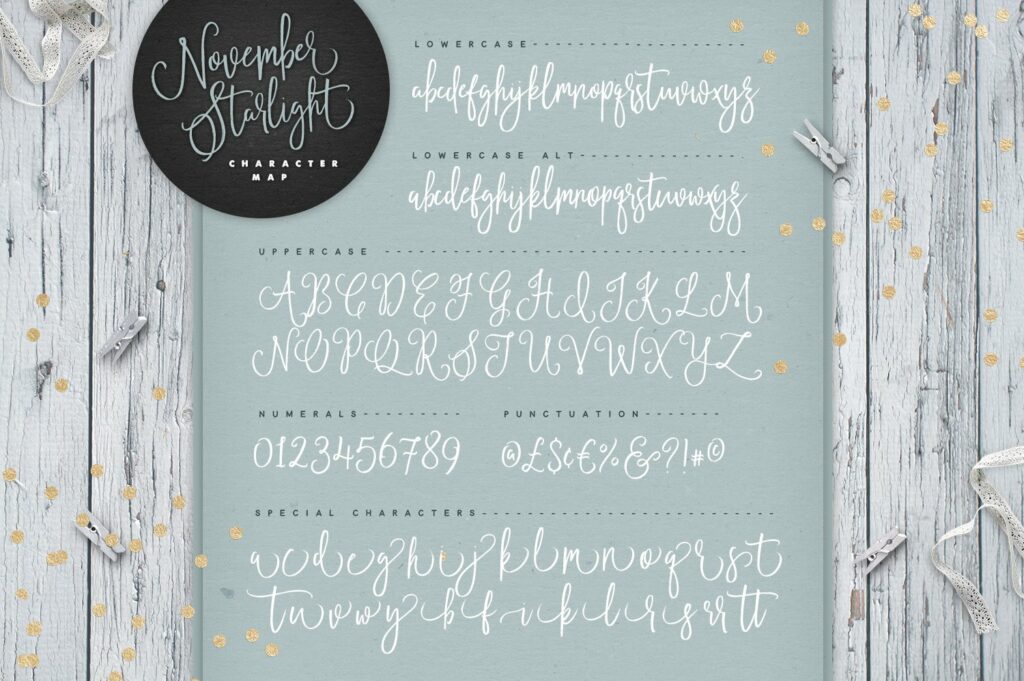 November
Starlight
CHARACTER
MAP
LOWERCASE
abcdefghijklmnopqrstuvwxyz
LOWERCASE ALT
abcdefghijklmnopqrstuvwxyz
UPPERCASE
ABCDEFGHIJKLM
NOPQRSTUVWXYZ
NUMERALS
0123456789
PUNCTUATION
@£$¢€%&?!#©
SPECIAL CHARACTERS
acdeghijklmnoqrst